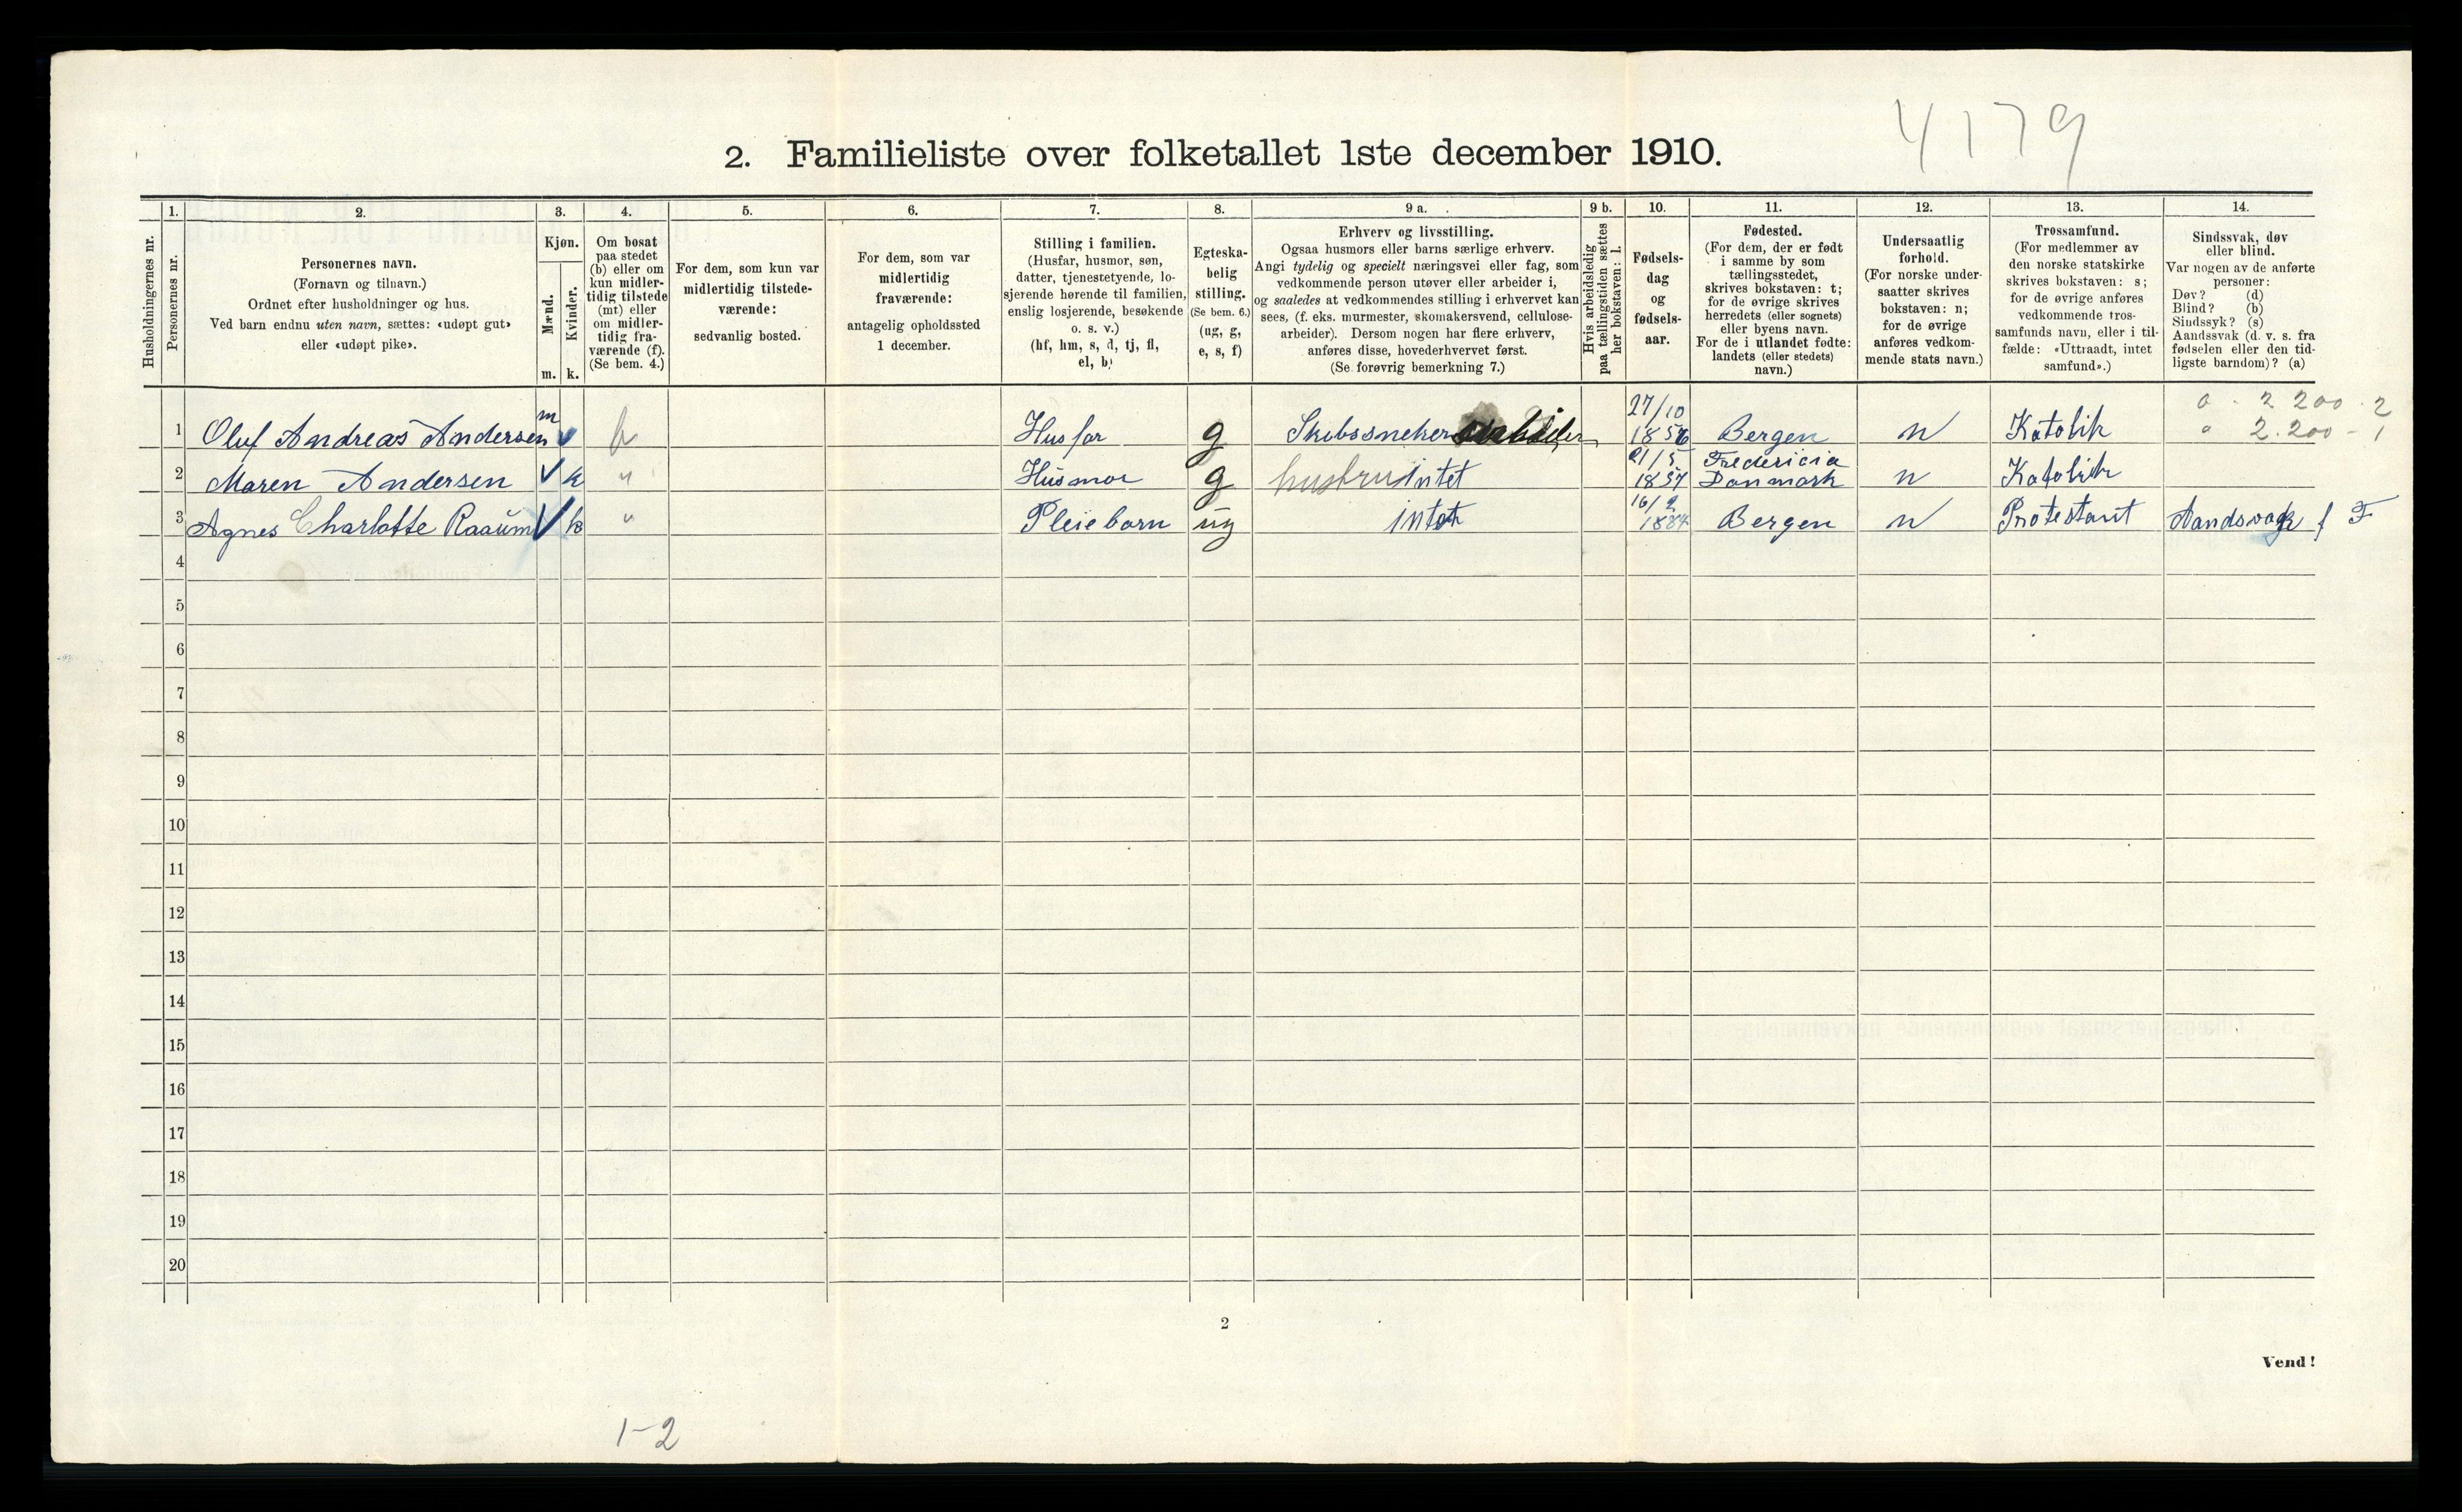 4179
2. Familieliste over folketallet 1ste december 1910.
Husholdningernes nr.
1.
Personernes nr.
2.
Personernes navn.
(Fornavn og tilnavn.)
Ordnet efter husholdninger og hus.
Ved barn endnu uten navn, sættes: «udøpt gut»
eller «udøpt pike».
3.
Kjøn.
Mænd.
m.
Kvinder.
k.
4.
Om bosat
paa stedet
(b) eller om
kun midler-
tidig tilstede
(mt) eller
om midler-
tidig fra-
værende (f).
(Se bem. 4.)
5.
For dem, som kun var
midlertidig tilstede-
værende:
sedvanlig bosted.
6.
For dem, som var
midlertidig
fraværende:
antagelig opholdssted
1 december.
7.
Stilling i familien.
(Husfar, husmor, søn,
datter, tjenestetyende, lo-
sjerende hørende til familien,
enslig losjerende, besøkende
o. s. v.)
(hf, hm, s, d, tj, fl,
el, b)
8.
Egteska-
belig
stilling.
(Se bem. 6.)
(ug, g,
e, s, f)
9 a.
Erhverv og livsstilling.
Ogsaa husmors eller barns særlige erhverv.
Angi tydelig og specielt næringsvei eller fag, som
vedkommende person utøver eller arbeider i,
og saaledes at vedkommendes stilling i erhvervet kan
sees, (f. eks. murmester, skomakersvend, cellulose-
arbeider). Dersom nogen har flere erhverv,
anføres disse, hovederhvervet først.
(Se forøvrig bemerkning 7.)
9 b.
Hvis arbeidsledig
paa tællingstiden sættes
her bokstaven: l.
10.
Fødsels-
dag
og
fødsels-
aar.
11.
Fødested.
(For dem, der er født
i samme by som
tællingsstedet,
skrives bokstaven: t;
for de øvrige skrives
herredets (eller sognets)
eller byens navn.
For de i utlandet fødte:
landets (eller stedets)
navn.)
12.
Undersaatlig
forhold.
(For norske under-
saatter skrives
bokstaven: n;
for de øvrige
anføres vedkom-
mende stats navn.)
13.
Trossamfund.
(For medlemmer av
den norske statskirke
skrives bokstaven: s;
for de øvrige anføres
vedkommende tros-
samfunds navn, eller i til-
fælde: «Uttraadt, intet
samfund».)
14.
Sindssvak, døv
eller blind.
Var nogen av de anførte
personer:
Døv? (d)
Blind? (b)
Sindssyk? (s)
Aandssvak (d. v. s. fra
fødselen eller den tid-
ligste barndom)? (a)
0 - 2 200 - 2
0 2.200 - 1
1 Oluf Andreas Andersen m b Husfar g Skibssneker 27/10 1856 Bergen n Katolik
2 Maren Andersen k " Husmor g hustru intet 21/5 1857 Fredericia Danmark n Katolik
3 Agnes Charlotte Raaum k " Pleiebarn ug intet 16/2 1884 Bergen n Protestant Aandsvag f F
4
5
6
7
8
9
10
11
12
13
14
15
16
17
18
19
20
2
Vend!
1-2